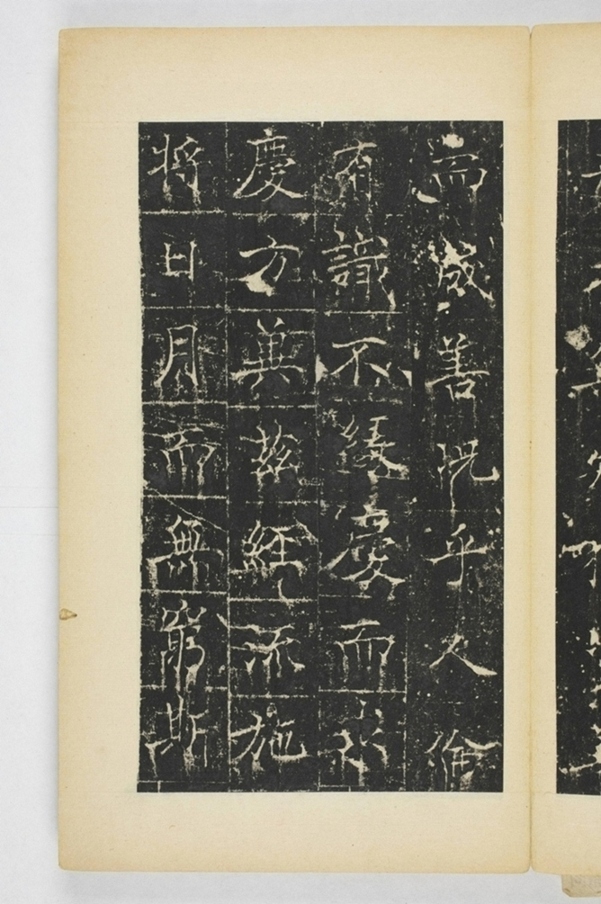 而成善況乎人倫
有識不緣慶而求
慶方冀茲經流施
將日月而無窮斯